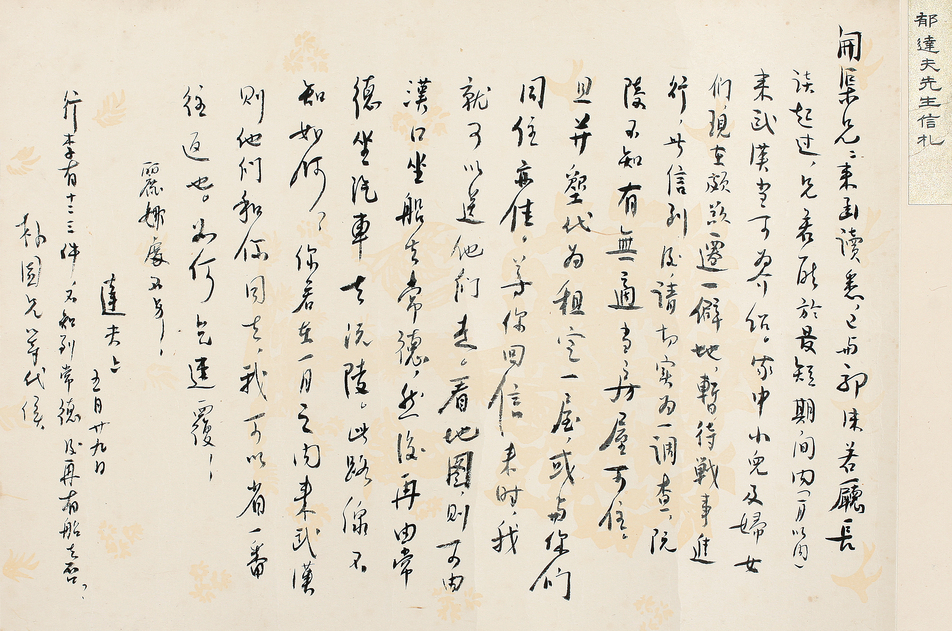 郁達夫先生信札
開渠兄：來函讀悉，已与郭沫若廳長
談起过，兄若能於最短期间内（一月以内）
来武漢当可为介绍。家中小兒及婦女
们，現在頗欲遷一僻地，暫待戰事進
行，此信到後，請切实为一調查，沅
陵不知有無適当房屋可住。
且并望代为租定一屋，或与你们
同住亦佳，等你回信来时，我
就可以送他们走。看地圖，則可由
漢口坐船去常德，然後再由常
德坐汽車去沅陵。此路線不
知如何？你若在一月之内来武漢
則他们和你同去，我可以省一番
往返也。如何乞速覆！
麗娜處不另！
達夫上
五月廿九日
行李有十二三件，不知到常德后再有船去否？
圆兄等代候